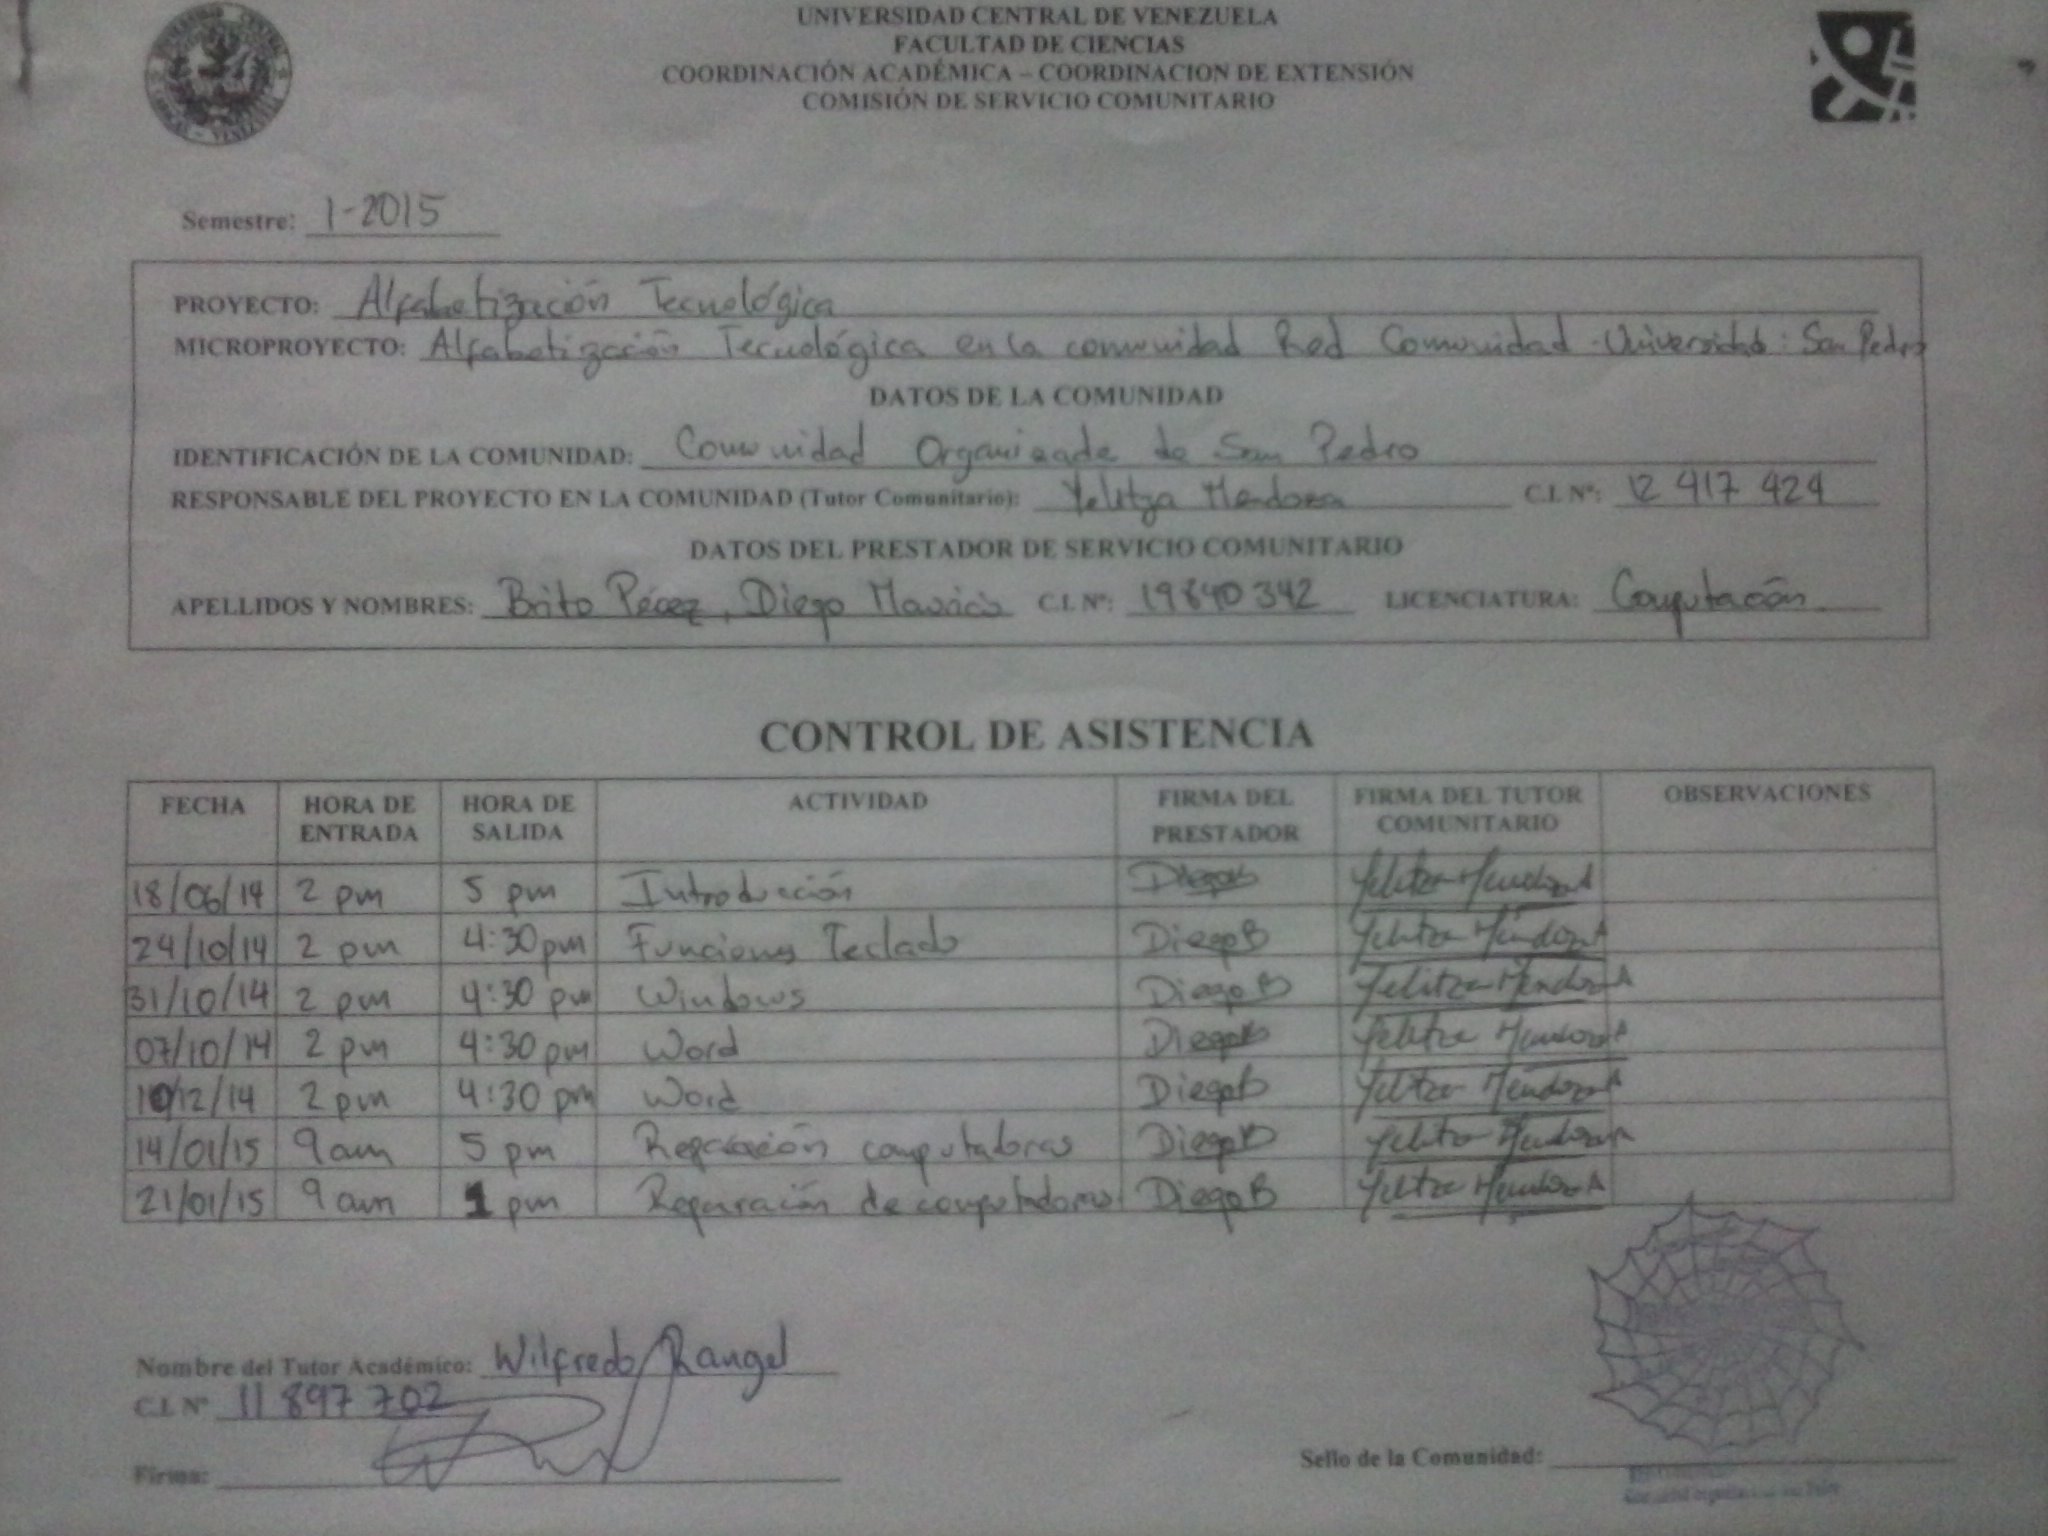 UNIVERSIDAD CENTRAL DE VENEZUELA
FACULTAD DE CIENCIAS
COORDINACIÓN ACADÉMICA – COORDINACION DE EXTENSIÓN
COMISIÓN DE SERVICIO COMUNITARIO
Semestre: 1-2015
PROYECTO: Alfabetización Tecnológica
MICROPROYECTO: Alfabetización Tecnológica en la comunidad Red Comunidad-Universidad: San Pedro
DATOS DE LA COMUNIDAD
IDENTIFICACIÓN DE LA COMUNIDAD: Comunidad Organizada de San Pedro
RESPONSABLE DEL PROYECTO EN LA COMUNIDAD (Tutor Comunitario): Yelitza Mendoza C.I. Nº: 12 417 424
DATOS DEL PRESTADOR DE SERVICIO COMUNITARIO
APELLIDOS Y NOMBRES: Brito Pérez, Diego Mauricio C.I. Nº: 19840342 LICENCIATURA: Computación
CONTROL DE ASISTENCIA
FECHA HORA DE ENTRADA HORA DE SALIDA ACTIVIDAD FIRMA DEL PRESTADOR FIRMA DEL TUTOR COMUNITARIO OBSERVACIONES
18/06/14 2 pm 5 pm Introducción DiegoB Yelitza Mendoza
24/10/14 2 pm 4:30 pm Funciones Teclado DiegoB Yelitza Mendoza
31/10/14 2 pm 4:30 pm Windows DiegoB Yelitza Mendoza
07/10/14 2 pm 4:30 pm Word DiegoB Yelitza Mendoza
10/12/14 2 pm 4:30 pm Word DiegoB Yelitza Mendoza
14/01/15 9 am 5 pm Reparación computadoras DiegoB Yelitza Mendoza
21/01/15 9 am 1 pm Reparación de computadoras DiegoB Yelitza Mendoza
Nombre del Tutor Académico: Wilfredo Rangel
C.I. Nº 11 897 702
Firma:
Sello de la Comunidad: